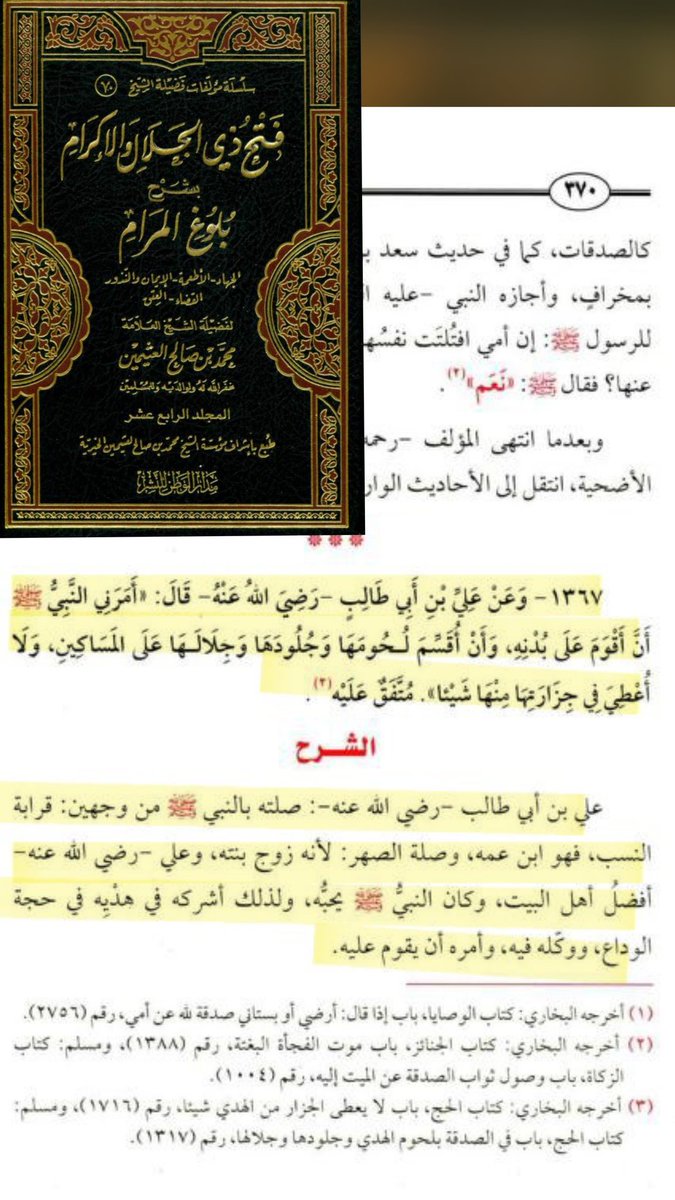 سلسلة مؤلفات فضيلة الشيخ (٧٠)
فتح ذي الجلال والإكرام
بشرح
بلوغ المرام
الجهاد - الأطعمة - الإيمان والنذور
القضاء - العتق
لفضيلة الشيخ العلامة
محمد بن صالح العثيمين
غفر الله له ولوالديه وللمسلمين
المجلد الرابع عشر
طبع بإشراف مؤسسة الشيخ محمد بن صالح العثيمين الخيرية
مدار الوطن للنشر
٣٧٠
كالصدقات، كما في حديث سعد
بمخرافٍ، وأجازه النبي -عليه
للرسول ﷺ: إن أمي افتُلتَت نفسُها
عنها؟ فقال ﷺ: «نَعَم»(٢).
وبعدما انتهى المؤلف -رحمه
الأضحية، انتقل إلى الأحاديث
***
١٣٦٧- وَعَنْ عَلِيِّ بْنِ أَبِي طَالِبٍ -رَضِيَ اللهُ عَنْهُ- قَالَ: «أَمَرَنِي النَّبِيُّ ﷺ
أَنْ أَقُوَمَ عَلَى بُدْنِهِ، وَأَنْ أُقَسِّمَ لُحومَهَا وَجُلُودَهَا وَجِلَالَهَا عَلَى المَسَاكِينِ، وَلَا
أُعْطِيَ فِي جِزَارَتِهَا مِنْهَا شَيْئا». مُتَّفَقٌ عَلَيْه(٣).
الشرح
علي بن أبي طالب -رضي الله عنه-: صلته بالنبي ﷺ من وجهين: قرابة
النسب، فهو ابن عمه، وصلة الصهر: لأنه زوج بنته، وعلي -رضي الله عنه-
أفضلُ أهل البيت، وكان النبيُّ ﷺ يحبُّه، ولذلك أشركه في هدْيِه في حجة
الوداع، ووكّله فيه، وأمره أن يقوم عليه.
(١) أخرجه البخاري: كتاب الوصايا، باب إذا قال: أرضي أو بستاني صدقة لله عن أمي، رقم (٢٧٥٦).
(٢) أخرجه البخاري: كتاب الجنائز، باب موت الفجأة البغتة، رقم (١٣٨٨)، ومسلم: كتاب
الزكاة، باب وصول ثواب الصدقة عن الميت إليه، رقم (١٠٠٤).
(٣) أخرجه البخاري: كتاب الحج، باب لا يعطى الجزار من الهدي شيئا، رقم (١٧١٦)، ومسلم:
كتاب الحج، باب في الصدقة بلحوم الهدي وجلودها وجلالها، رقم (١٣١٧).